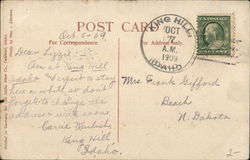 Oct. 5-09
POST CARD
For Correspondence.
For Address only.
KING HILL,
OCT
7
A.M.
1909
IDAHO
Dear Lizzie
Am at King Hill
Idaho Expect to stay
here a while so don't
forget to change the
address with some
Carrie
King Hill
Idaho.
Mrs. Frank Gifford
Beach
N. Dakota